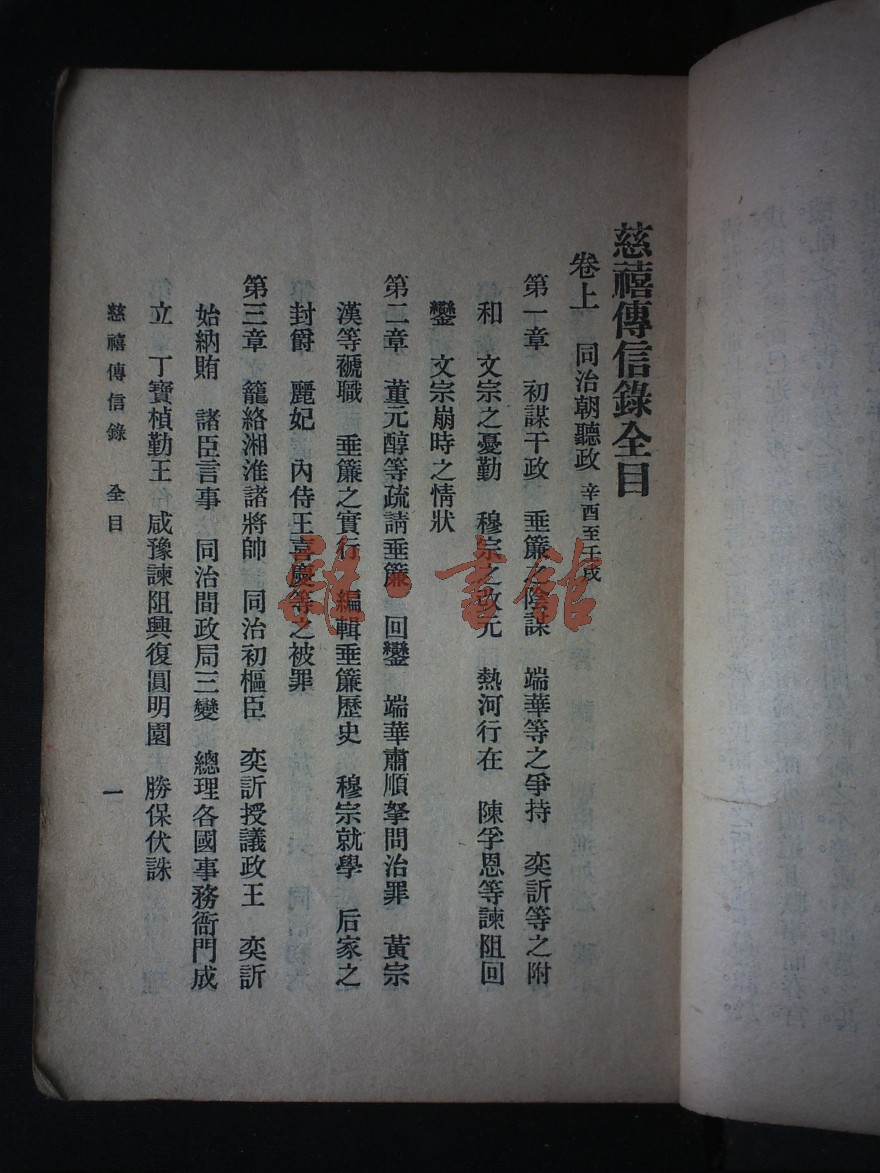 慈禧傳信錄全目
卷上　同治朝聽政　辛酉至壬戌
第一章　初謀干政　垂簾之陰謀　端華等之爭持　奕訢等之附
和　文宗之憂勤　穆宗之改元　熱河行在　陳孚恩等諫阻回
鑾　文宗崩時之情狀
第二章　董元醇等疏請垂簾　回鑾　端華肅順拏問治罪　黃宗
漢等褫職　垂簾之實行　編輯垂簾歷史　穆宗就學　后家之
封爵　麗妃　內侍王喜慶等之被罪
第三章　籠絡湘淮諸將帥　同治初樞臣　奕訢授議政王　奕訢
始納賄　諸臣言事　同治間政局三變　總理各國事務衙門成
立　丁寶楨勤王　咸豫諫阻興復圓明園　勝保伏誅
慈禧傳信錄　全目
一